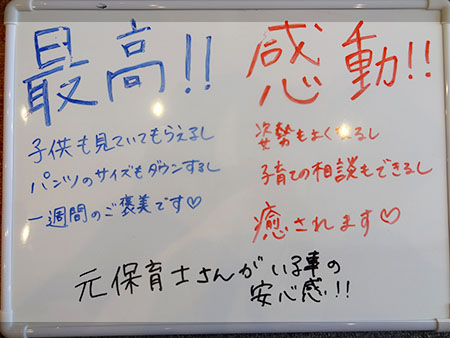 最高!!
子供も見ていてもらえるし
パンツのサイズもダウンするし
一週間のご褒美です♡
感動!!
姿勢もよくなるし
子育ての相談もできるし
癒されます♡
元保育士さんがいる事の
安心感!!